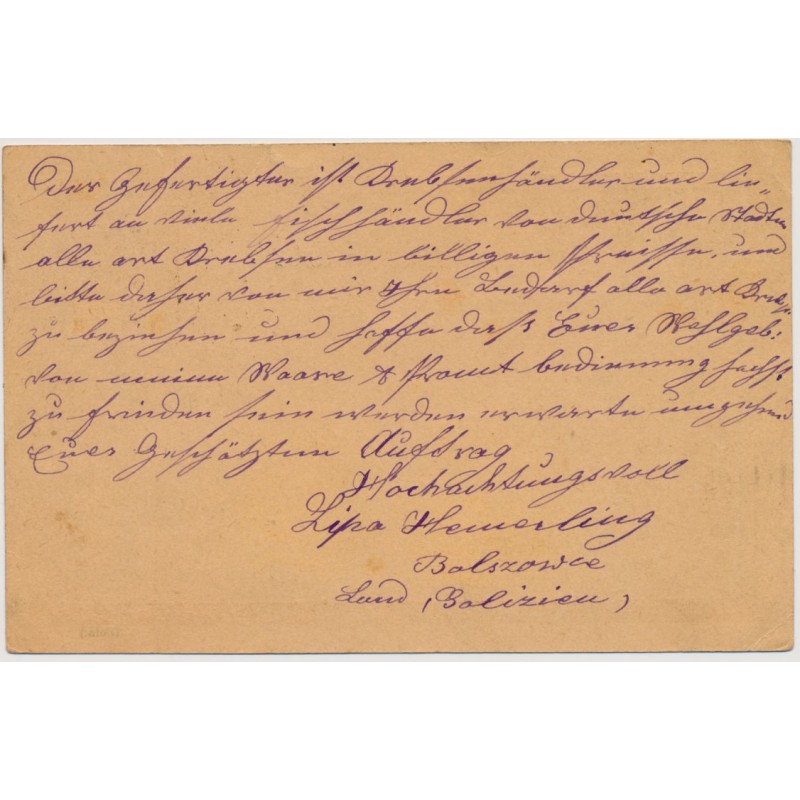 Der Gefertigter ist Krebsenhändler und lie=
fert an viele fischhändler von deutsche Stadten
alle art Krebsen in billigen Preisse, und
bitte daher von mir Ihren Bedarf alle art Krebse
zu beziehen und hoffe daß Euer Wohlgeb:
von meinen Waare & Promt bedienung höchst
zu frieden sein werden erwarte umgehend
Euer Geschätzten Auftrag
Hochachtungsvoll
Lipa Hemerling
Bolszowce
Land (Galizien)